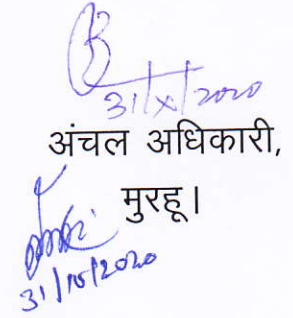 31/x/2020
अंचल अधिकारी,
मुरहू।
31/10/2020